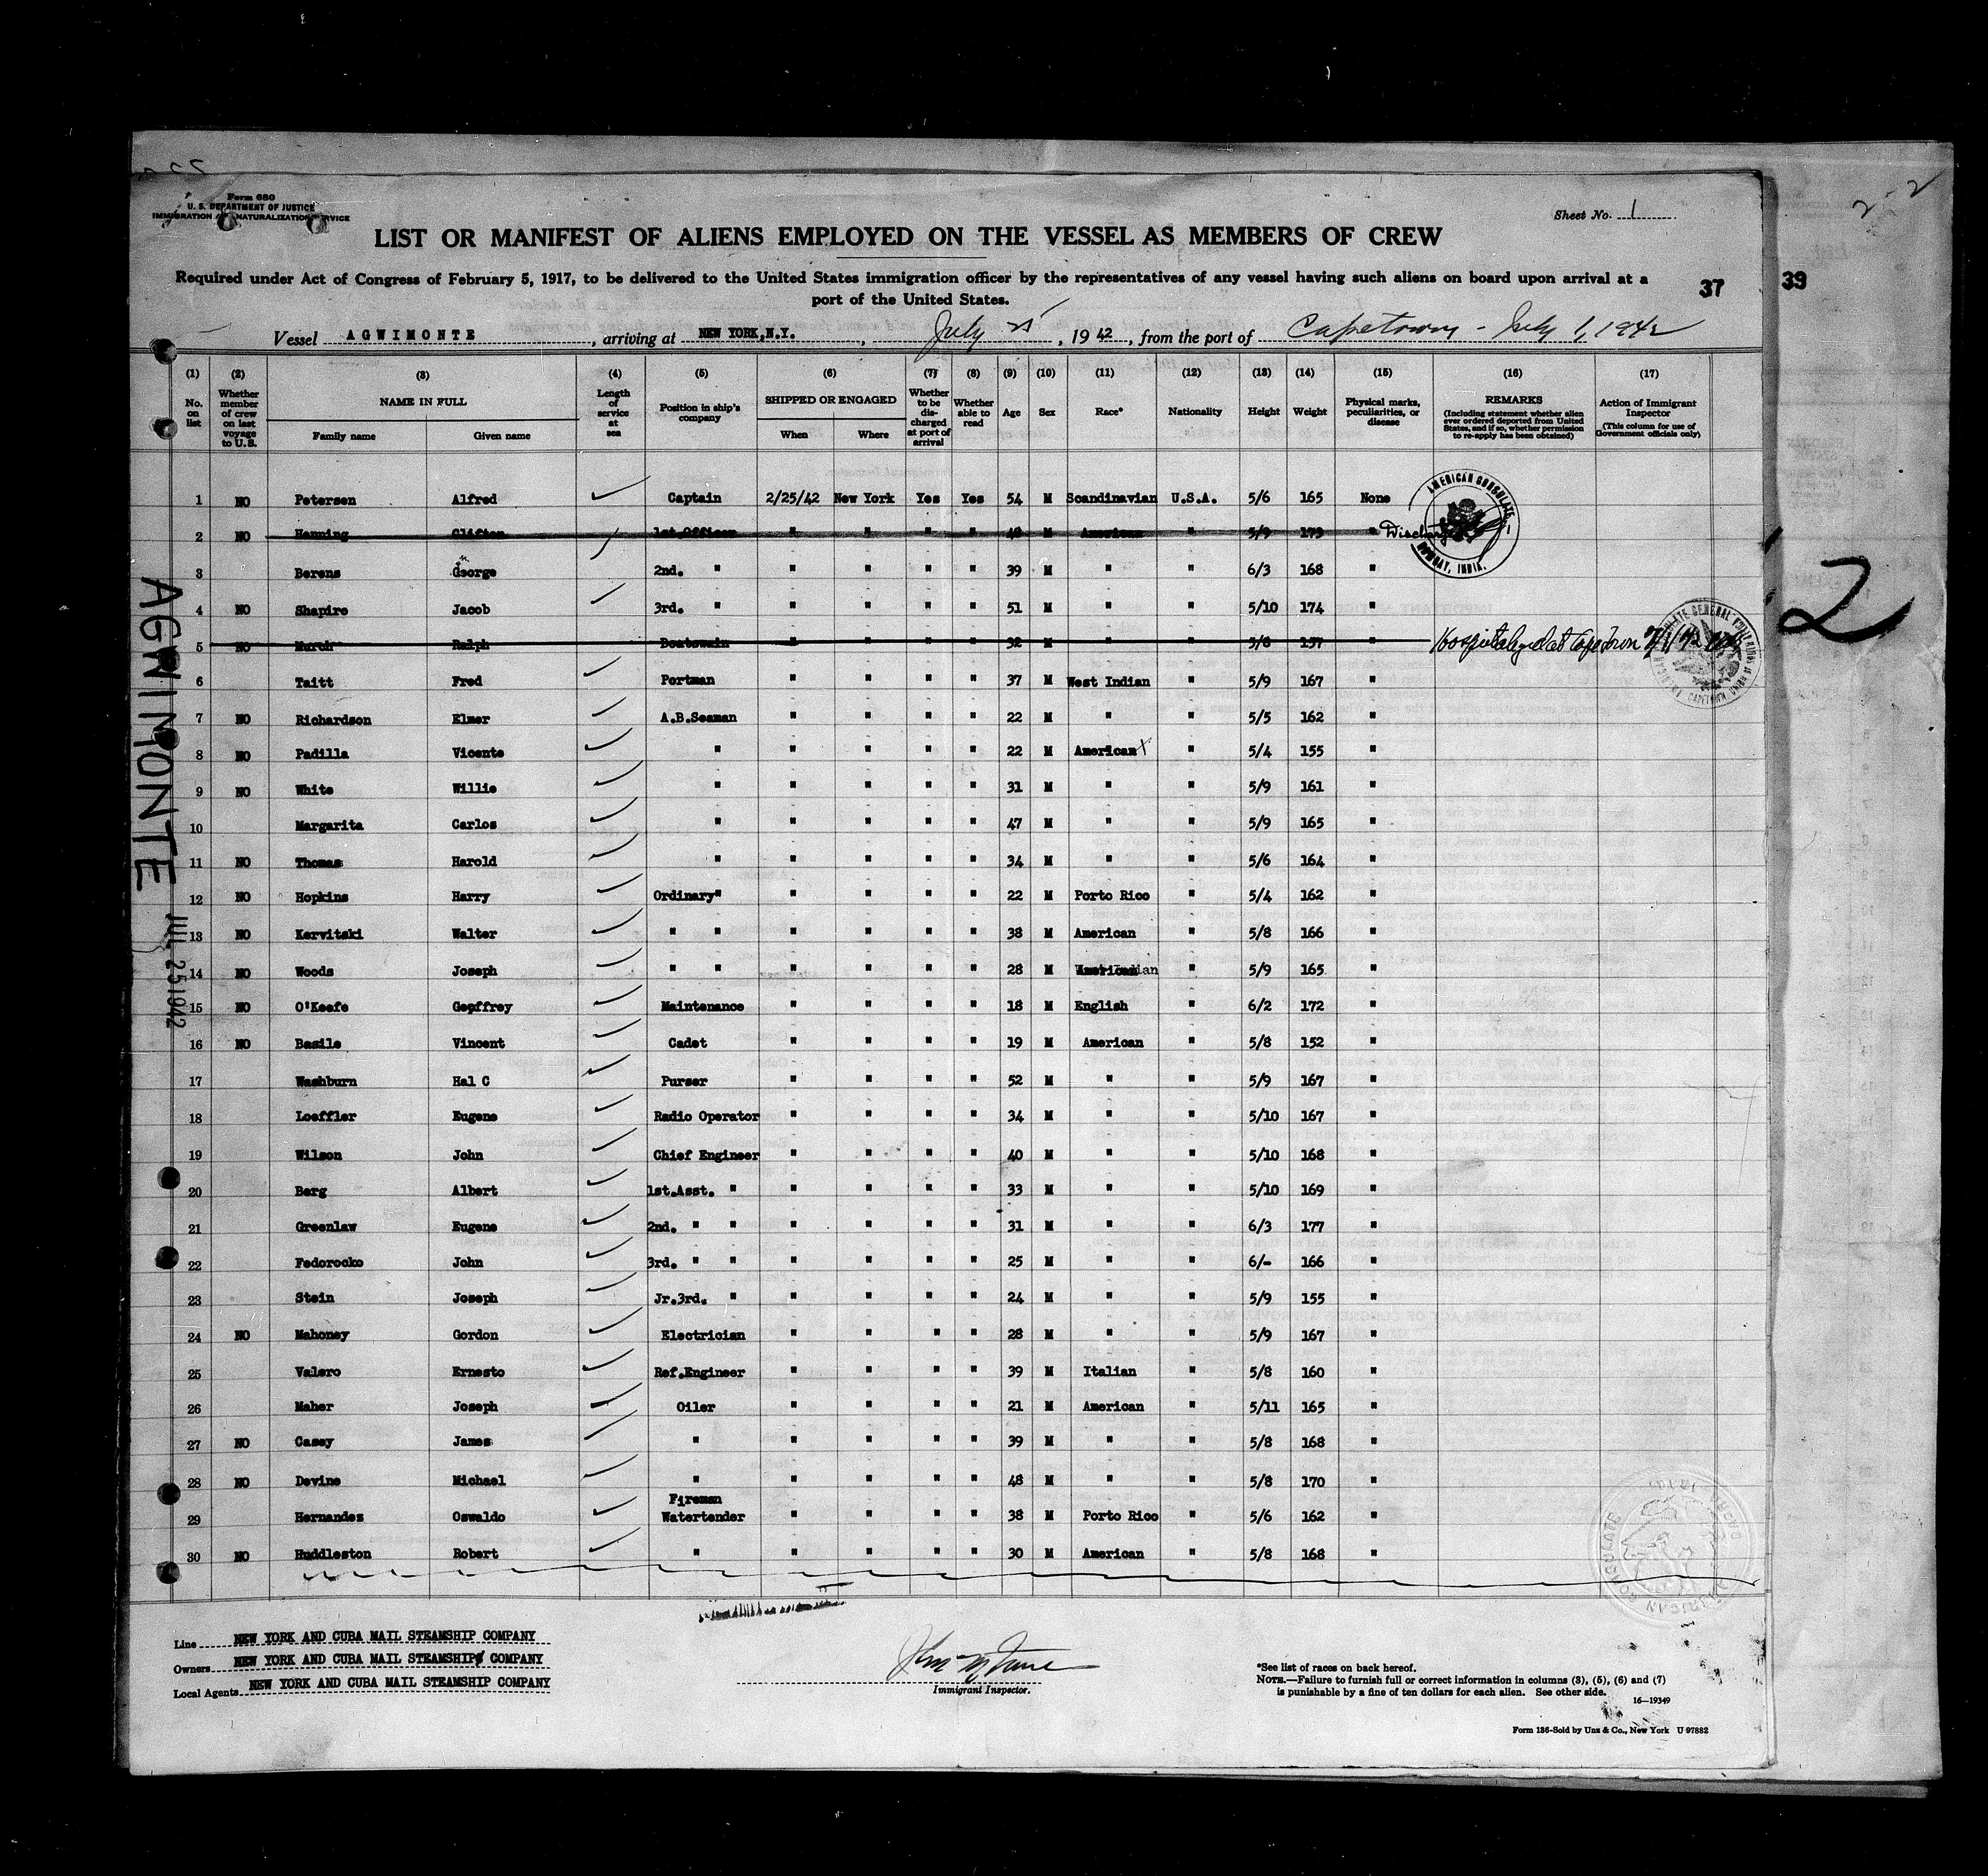 Form 680
U. S. DEPARTMENT OF JUSTICE
IMMIGRATION NATURALIZATION SERVICE
Sheet No. 1
LIST OR MANIFEST OF ALIENS EMPLOYED ON THE VESSEL AS MEMBERS OF CREW
Required under Act of Congress of February 5, 1917, to be delivered to the United States immigration officer by the representatives of any vessel having such aliens on board upon arrival at a
port of the United States.
37
39
2
Vessel AGWIMONTE, arriving at NEW YORK,N.Y., July 25, 1942, from the port of Capetown - July 1, 1942
(1) No. on list (2) Whether member of crew on last voyage to U.S. (3) NAME IN FULL Family name Given name (4) Length of service at sea (5) Position in ship's company (6) SHIPPED OR ENGAGED When Where (7) Whether to be discharged at port of arrival (8) Whether able to read (9) Age (10) Sex (11) Race* (12) Nationality (13) Height (14) Weight (15) Physical marks, peculiarities, or disease (16) REMARKS (Including statement whether alien ever ordered deported from United States, and if so, whether permission to re-apply has been obtained) (17) Action of Immigrant Inspector (This column for use of Government officials only)
1 NO Petersen Alfred Captain 2/25/42 New York Yes Yes 54 M Scandinavian U.S.A. 5/6 165 None
2 NO Henning Clifton 1st.Officer " " " " 48 M American " 5/9 179 "
3 Berens George 2nd. " " " " " 39 M " " 6/3 168 "
4 NO Shapiro Jacob 3rd. " " " " " 51 M " " 5/10 174 "
5 NO Murch Ralph Boatswain " " " " 32 M " " 5/8 157 " Hospitalized at Capetown
6 Taitt Fred Portman " " " " 37 M West Indian " 5/9 167 "
7 NO Richardson Elmer A.B.Seaman " " " " 22 M " " 5/5 162 "
8 NO Padilla Vicente " " " " " 22 M American X " 5/4 155 "
9 NO White Willie " " " " " 31 M " " 5/9 161 "
10 Margarita Carlos " " " " " 47 M " " 5/9 165 "
11 NO Thomas Harold " " " " " 34 M " " 5/6 164 "
12 NO Hopkins Harry Ordinary" " " " " 22 M Porto Rico " 5/4 162 "
13 NO Kervitski Walter " " " " " " 38 M American " 5/8 166 "
14 NO Woods Joseph " " " " " " 28 M " 5/9 165 "
15 NO O'Keefe Geoffrey Maintenance " " " " 18 M English " 6/2 172 "
16 NO Basile Vincent Cadet " " " " 19 M American " 5/8 152 "
17 Washburn Hal C Purser " " " " 52 M " " 5/9 167 "
18 Loeffler Eugene Radio Operator " " " " 34 M " " 5/10 167 "
19 Wilson John Chief Engineer " " " " 40 M " " 5/10 168 "
20 Berg Albert 1st.Asst. " " " " " 33 M " " 5/10 169 "
21 Greenlaw Eugene 2nd. " " " " " " 31 M " " 6/3 177 "
22 Fedorocko John 3rd. " " " " " " 25 M " " 6/- 166 "
23 Stein Joseph Jr.3rd. " " " " " 24 M " " 5/9 155 "
24 NO Mahoney Gordon Electrician " " " " 28 M " " 5/9 167 "
25 Valero Ernesto Ref.Engineer " " " " 39 M Italian " 5/8 160 "
26 Maher Joseph Oiler " " " " 21 M American " 5/11 165 "
27 NO Casey James " " " " " 39 M " " 5/8 168 "
28 NO Devine Michael " " " " " 48 M " " 5/8 170 "
29 Hernandez Oswaldo Fireman Watertender " " " " 38 M Porto Rico " 5/6 162 "
30 NO Huddleston Robert " " " " " 30 M American " 5/8 168 "
AMERICAN CONSULATE
BOMBAY, INDIA.
AGWIMONTE
JUL 25 1942
Line NEW YORK AND CUBA MAIL STEAMSHIP COMPANY
Owners NEW YORK AND CUBA MAIL STEAMSHIP COMPANY
Local Agents NEW YORK AND CUBA MAIL STEAMSHIP COMPANY
Immigrant Inspector.
*See list of races on back hereof.
NOTE.—Failure to furnish full or correct information in columns (3), (5), (6) and (7)
is punishable by a fine of ten dollars for each alien. See other side.
16—19349
Form 136-Sold by Unz & Co., New York U 97882